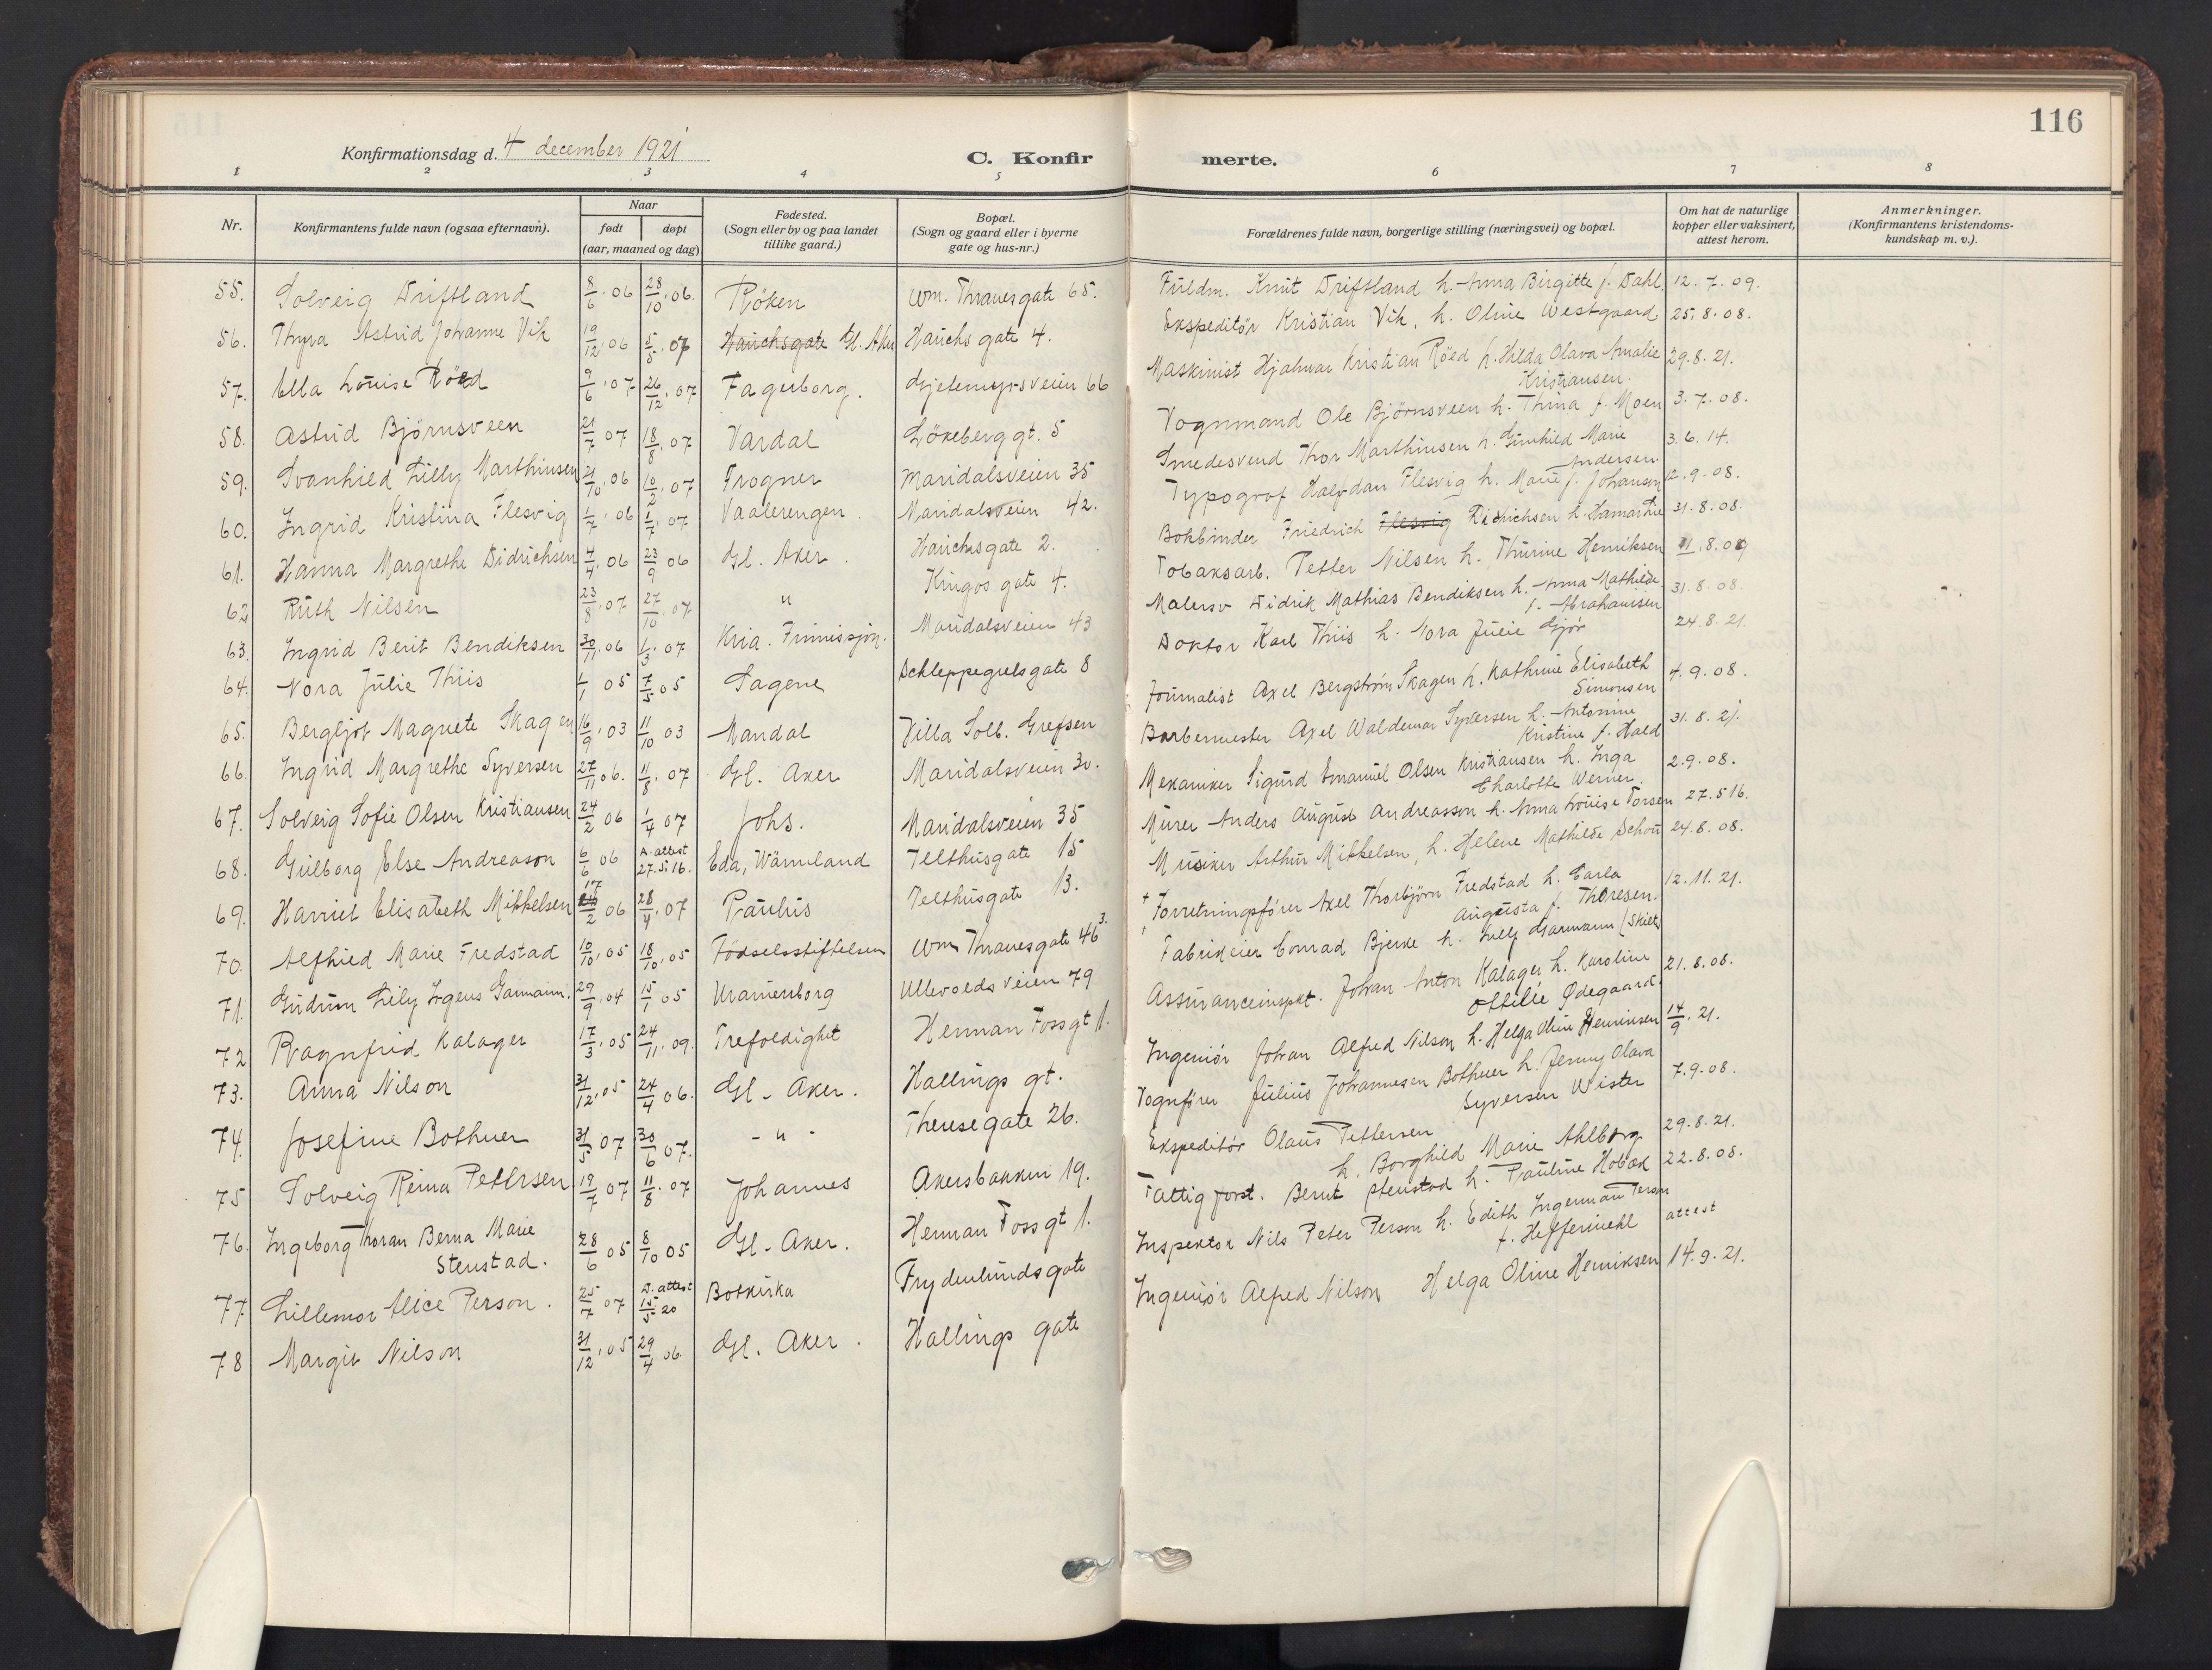 116
Konfirmationsdag d. 4 december 1921
C. Konfirmerte.
1 2 3 4 5 6 7 8
Nr.
Konfirmantens fulde navn (ogsaa efternavn).
Naar
født døpt
(aar, maaned og dag)
Fødested.
(Sogn eller by og paa landet
tillike gaard.)
Bopæl.
(Sogn og gaard eller i byerne
gate og hus-nr.)
Forældrenes fulde navn, borgerlige stilling (næringsvei) og bopæl.
Om hat de naturlige
kopper eller vaksinert,
attest herom.
Anmerkninger.
(Konfirmantens kristendoms-
kundskap m. v.).
55. Solveig Driftland 8/6.06 28/10.06. Røken Wm. Thranesgate 65. Fuldm. Knut Driftland h. Anna Birgitte f. Dahl. 12.7.09.
56. Thyra Astrid Johanne Vik 19/12.06 5/5.07 Hauchsgate Gl. Aker Hauchs gate 4. Ekspeditør Kristian Vik, h. Oline Westgaard 25.8.08.
57. Ella Louise Røed 9/6.07 26/12.07 Fagerborg. Gjetemyrsveien 66 Maskinist Hjalmar Kristian Røed h. Hilda Olava Amalie 29.8.21.
Kristiansen.
58. Astrid Bjørnsveen 21/7 07 18/8.07 Vardal Løkeberg gt. 5 Vognmand Ole Bjørnsveen h. Thina f. Moen 3.7.08.
59. Svanhild Lilly Marthinsen 21/10.06 10/2.07 Frogner Maridalsveien 35 Smedesvend Thor Marthinsen h. Gunhild Marie 3.6.14.
Andersen.
60. Ingrid Kristina Flesvig 1/7.06 1/7.07 Vaalerengen. Maridalsveien 42. Typograf Halvdan Flesvig h. Marie f. Johanson 12.9.08.
61. Hanna Margrethe Didrichsen 4/4.06 23/9 06 Gl. Aker. Hauchsgate 2. Bokbinder Friedrich Flesvig Didrichsen h. 31.8.08.
62 Ruth Nilsen 23/8.07 27/10.07 " Kingos gate 4. Tobaksarb. Petter Nilsen h. Thurine Henriksen 11.8.09
63. Ingrid Berit Bendiksen 30/11.06 1/3.07 Kria. Maridalsveien 43 Malersv Didrik Mathias Bendiksen h. Anna Mathilde 31.8.08.
f. Abrahamsen
64. Nora Julie Thiis 1/1 05 7/5.05 Sagene Schleppegrelsgate 8 Doktor Karl Thiis h. Nora Julie Gjør 24.8.21.
65. Bergljot Magnete Skagen 16/9.03 11/10 03 Mandal Villa Solb. Grefsen Journalist Axel Bergstrøm Skagen h. Kathrine Elisabeth 4.9.08.
Simonsen
66. Ingrid Margrethe Syversen 27/11 06. 11/8.07 Gl. Aker Maridalsveien 30. Barbermester Axel Waldemar Syversen h. Antonine 31.8.21.
Kristine f. Hald
67. Solveig Sofie Olsen Kristiansen 24/2 06 1/4 07 Johs. Maridalsveien 35 Mekaniker Sigurd Emanuel Olsen Kristiansen h. Inga 2.9.08.
Charlotte Werner.
68. Gulborg Else Andreason 6/6 06 A. attest 27.5.16. Eda, Wärmland Telthusgate 15 Murer Anders August Andreasson h. Anna Louise Torsen 27.5 16.
69. Harriet Elisabeth Mikkelsen 17/2 06 28/4.07 Paulus Telthusgate 13. Musiker Arthur Mikkelsen, h. Helene Mathilde Schou 24.8.08.
70. Alfhild Marie Fredstad 10/10.05 18/10.05 Fødselsstiftelsen Wm Thranesgate 46 3. † Forretningsfører Axel Thorbjørn Fredstad h. Carla 12.11.21.
Augusta f. Thoresen.
71. Gudrun Lily Irgens Garmann. 29/9.04 15/1.05 Uranienborg Ullevoldsveien 79 Fabrikeier Conrad Bjerke h. Lilly Garmann (Skilt)
72 Ragnfrid Kalager 17/3.05 24/11.09. Trefoldighet Herman Foss gt 1. Assuranceinspekt. Johan Anton Kalager h. Karoline 21.8.08.
Ottilie Ødegaard.
73. Anna Nilson 31/12.05 24/4 06. Gl. Aker. Hallings gt. Ingeniør Johan Alfred Nilson h. Helga Oline Henriksen 14/9.21.
74. Josefine Bothner 31/5 07 30/6 07. - " - Theresegate 26. Vognfører Julius Johannesen Bothner h. Jenny Olava 7.9.08.
Syversen Wister
75 Solveig Reina Pettersen 19/7 07 11/8.07 Johannes Akersbakken 19. Ekspeditør Olaus Pettersen 29.8.21.
h. Borghild Marie Ahlborg
76. Ingeborg Thoran Berna Marie 28/6 05 8/10 05 Gl. Aker. Herman Foss gt 1. Fattigforst. Bernt Stenstad h. Pauline Hobæk 22.8.08.
Stenstad.
77. Lillemor Alice Person. 25/7 07 D. attest 15/5 20 Botkirka Frydenlundsgate Inspektør Nils Peter Person h. Edith Ingerman Person attest
f. Heffermehl
78 Margit Nilson 31/12.05 29/4 06. Gl. Aker. Hallings gate Ingeniør Alfred Nilson Helga Oline Henriksen 14.9.21.